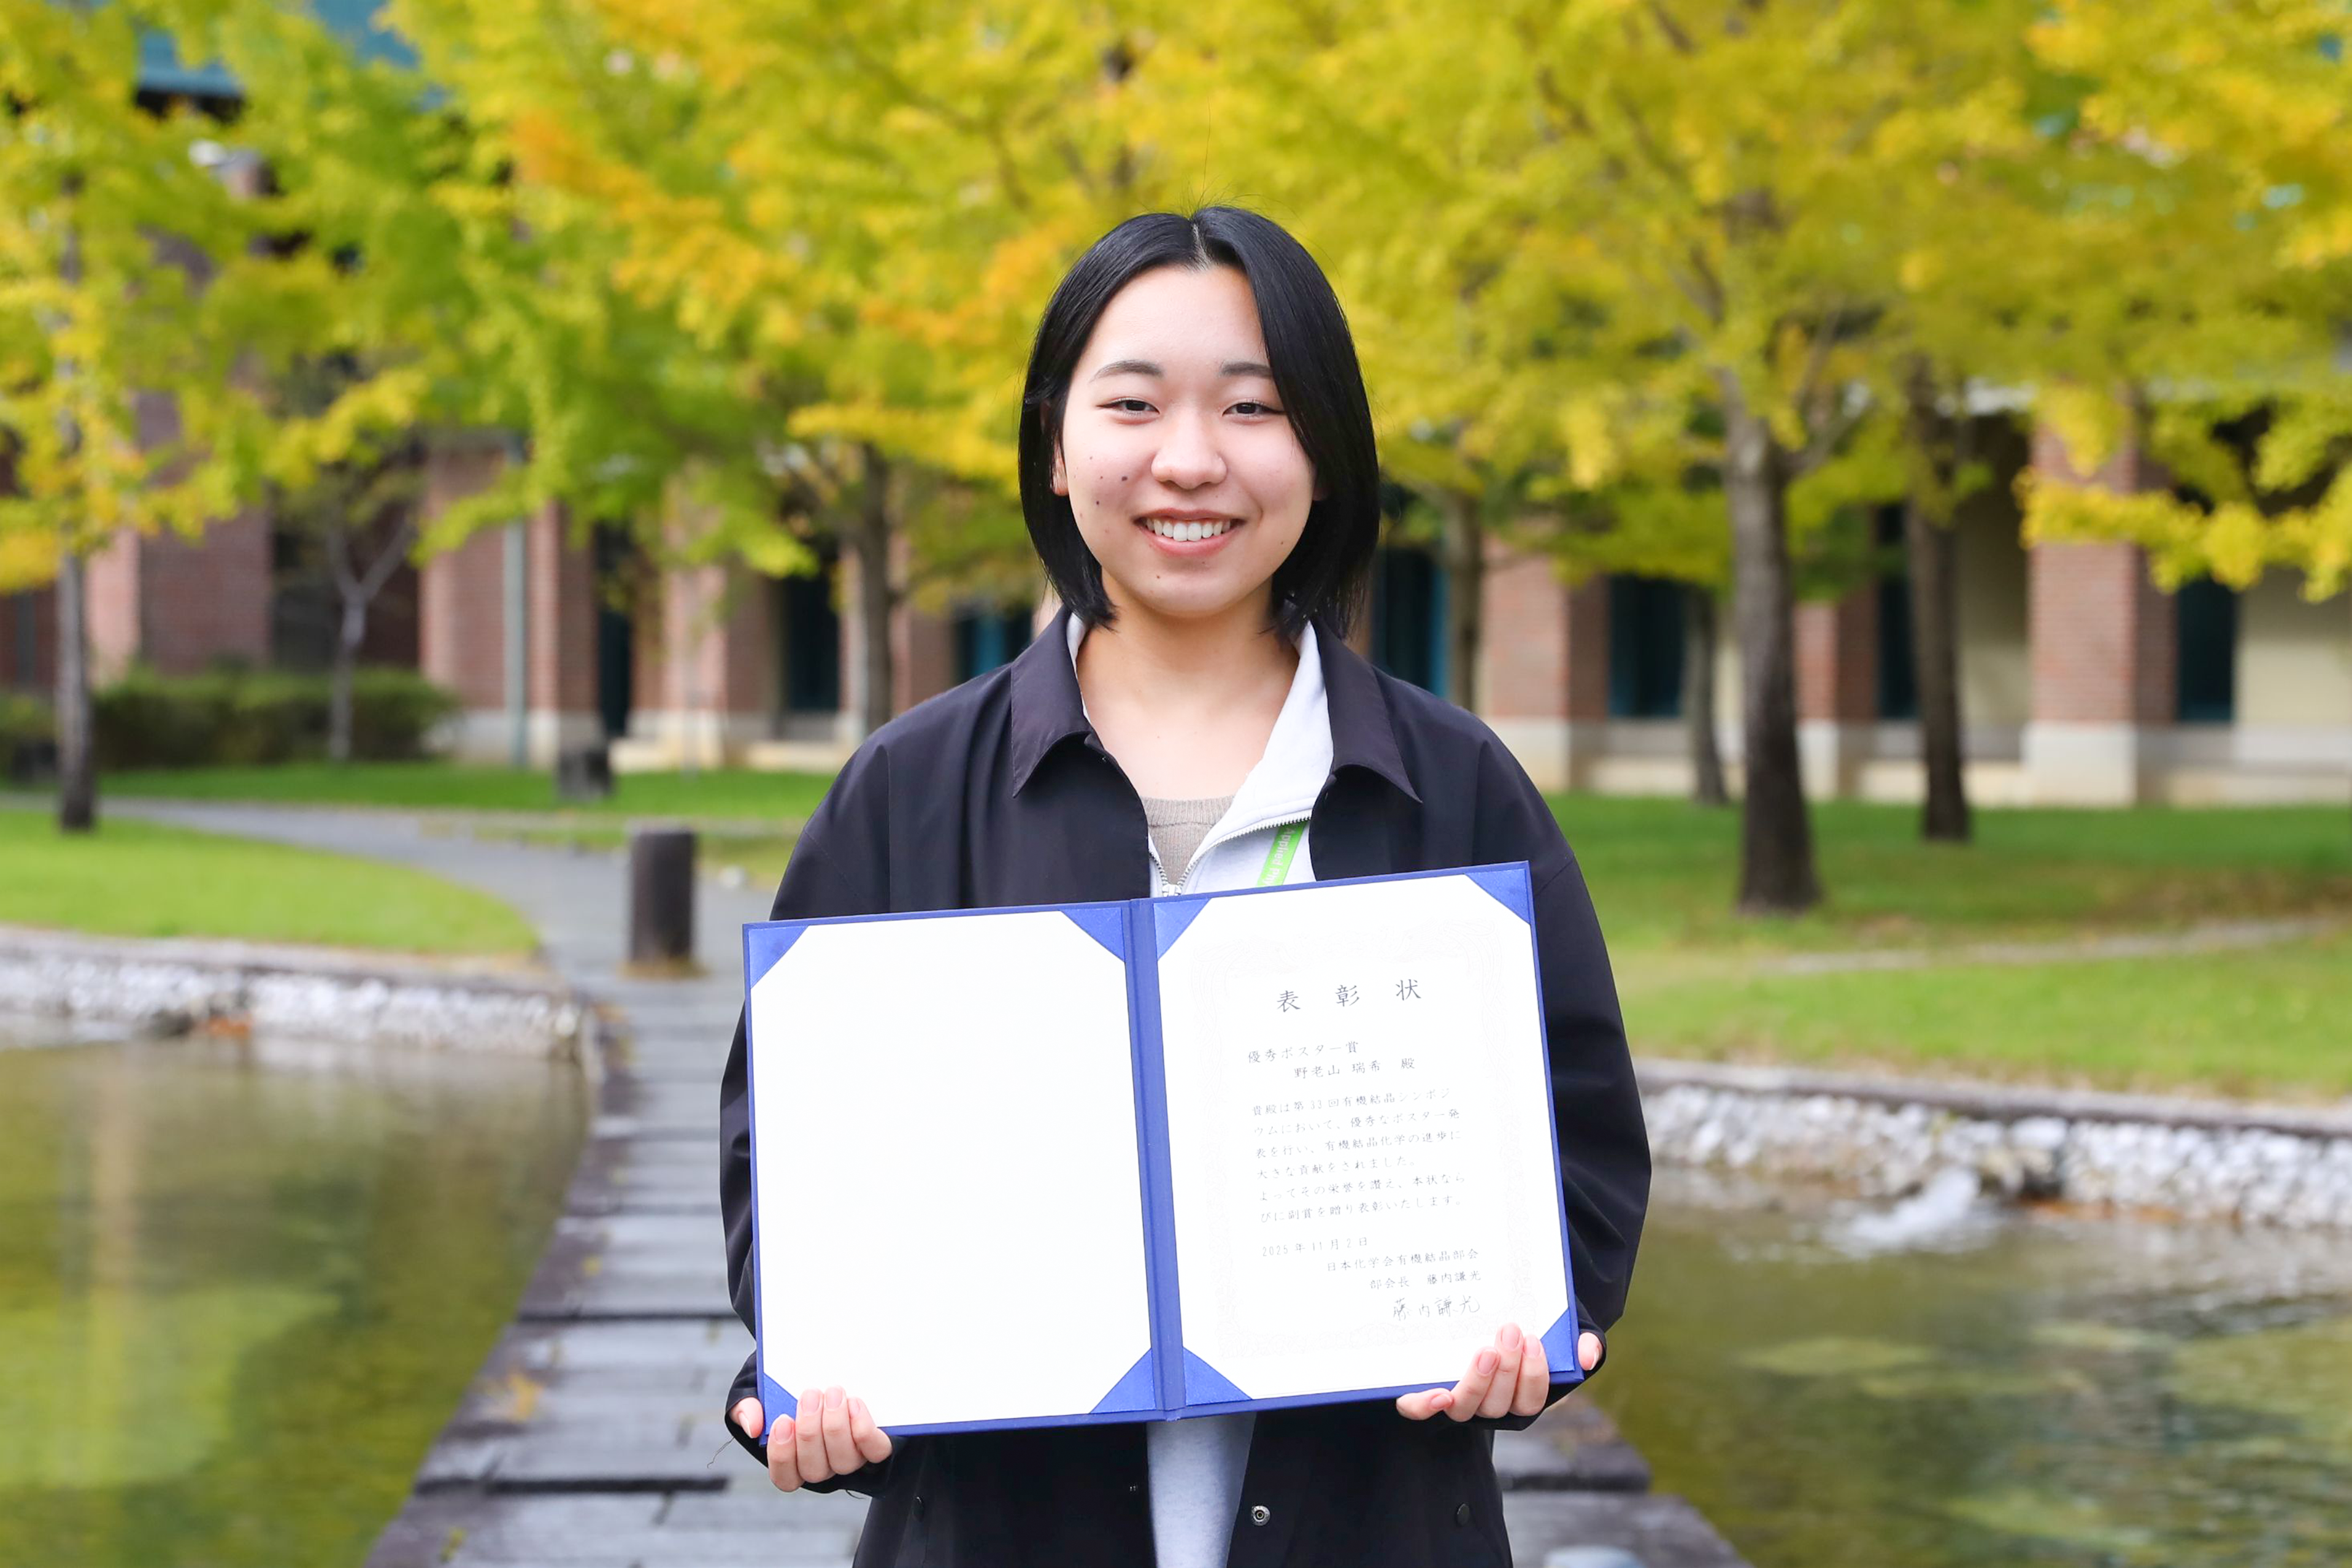 表彰状
優秀ポスター賞
野老山 瑞希 殿
貴殿は第33回有機結晶シンポジ
ウムにおいて、優秀なポスター発
表を行い、有機結晶化学の進歩に
大きな貢献をされました。
よってその栄誉を讃え、本状なら
びに副賞を贈り表彰いたします。
2025年11月2日
日本化学会有機結晶部会
部会長 藤内謙光
藤内謙光